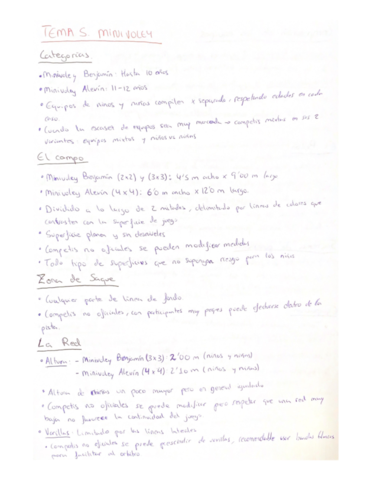 TEMA 5. MINIVOLEY
Categorías
• Minivoley Benjamín: Hasta 10 años
• Minivoley Alevín: 11-12 años
• Equipos de niños y niñas compiten x separado, respetando edades en cada
caso.
• Cuando la escasez de equipos sea muy marcada → competis mixtos en sus 2
variantes: equipos mixtos y niños vs niñas
El campo
• Minivoley Benjamín (2x2) y (3x3): 4'5 m ancho x 9'00 m largo
• Minivoley Alevín (4x4): 6'0 m ancho x 12'0 m largo.
• Dividido a lo largo de 2 mitades, delimitado por líneas de colores que
contrasten con la superficie de juego
• Superficie planas y sin desniveles
• Competis no oficiales se pueden modificar medidas
• Todo tipo de superficies que no supongan riesgo para los niños
Zona de Saque
• Cualquier parte de línea de fondo
• Competis no oficiales, con participantes muy peques puede efectuarse dentro de la
pista.
La Red
• Altura: - Minivoley Benjamín (3x3) 2'00 m (niños y niñas)
- Minivoley Alevín (4x4) 2'10 m (niños y niñas)
• Altura de un poco mayor pero en general ajustada
• Competis no oficiales se puede modificar pero respetar que una red muy
baja no favorece la continuidad del juego
• Varillas: Limitada por las líneas laterales
• Competis no oficiales se puede prescindir de varillas, recomendable usar bandas blancas
para facilitar el arbitro